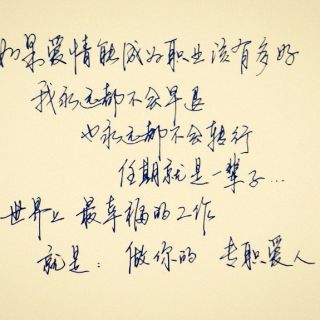 如果爱情能成为职业该有多好
我永远都不会早退
也永远都不会转行
任期就是一辈子...
世界上 最幸福的工作
就是: 做你的 专职爱人